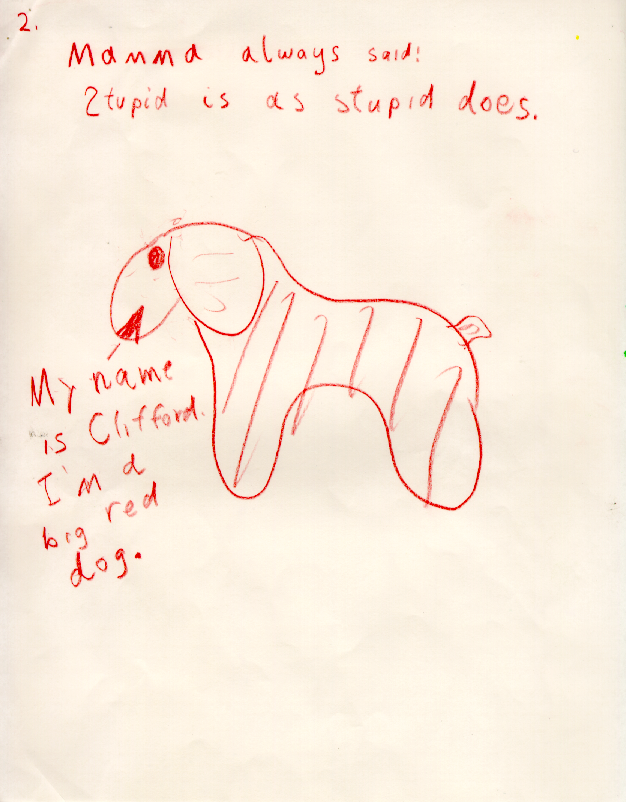 2.
Mamma always said:
Stupid is as stupid does.
My name
is Clifford.
I'm a
big red
dog.